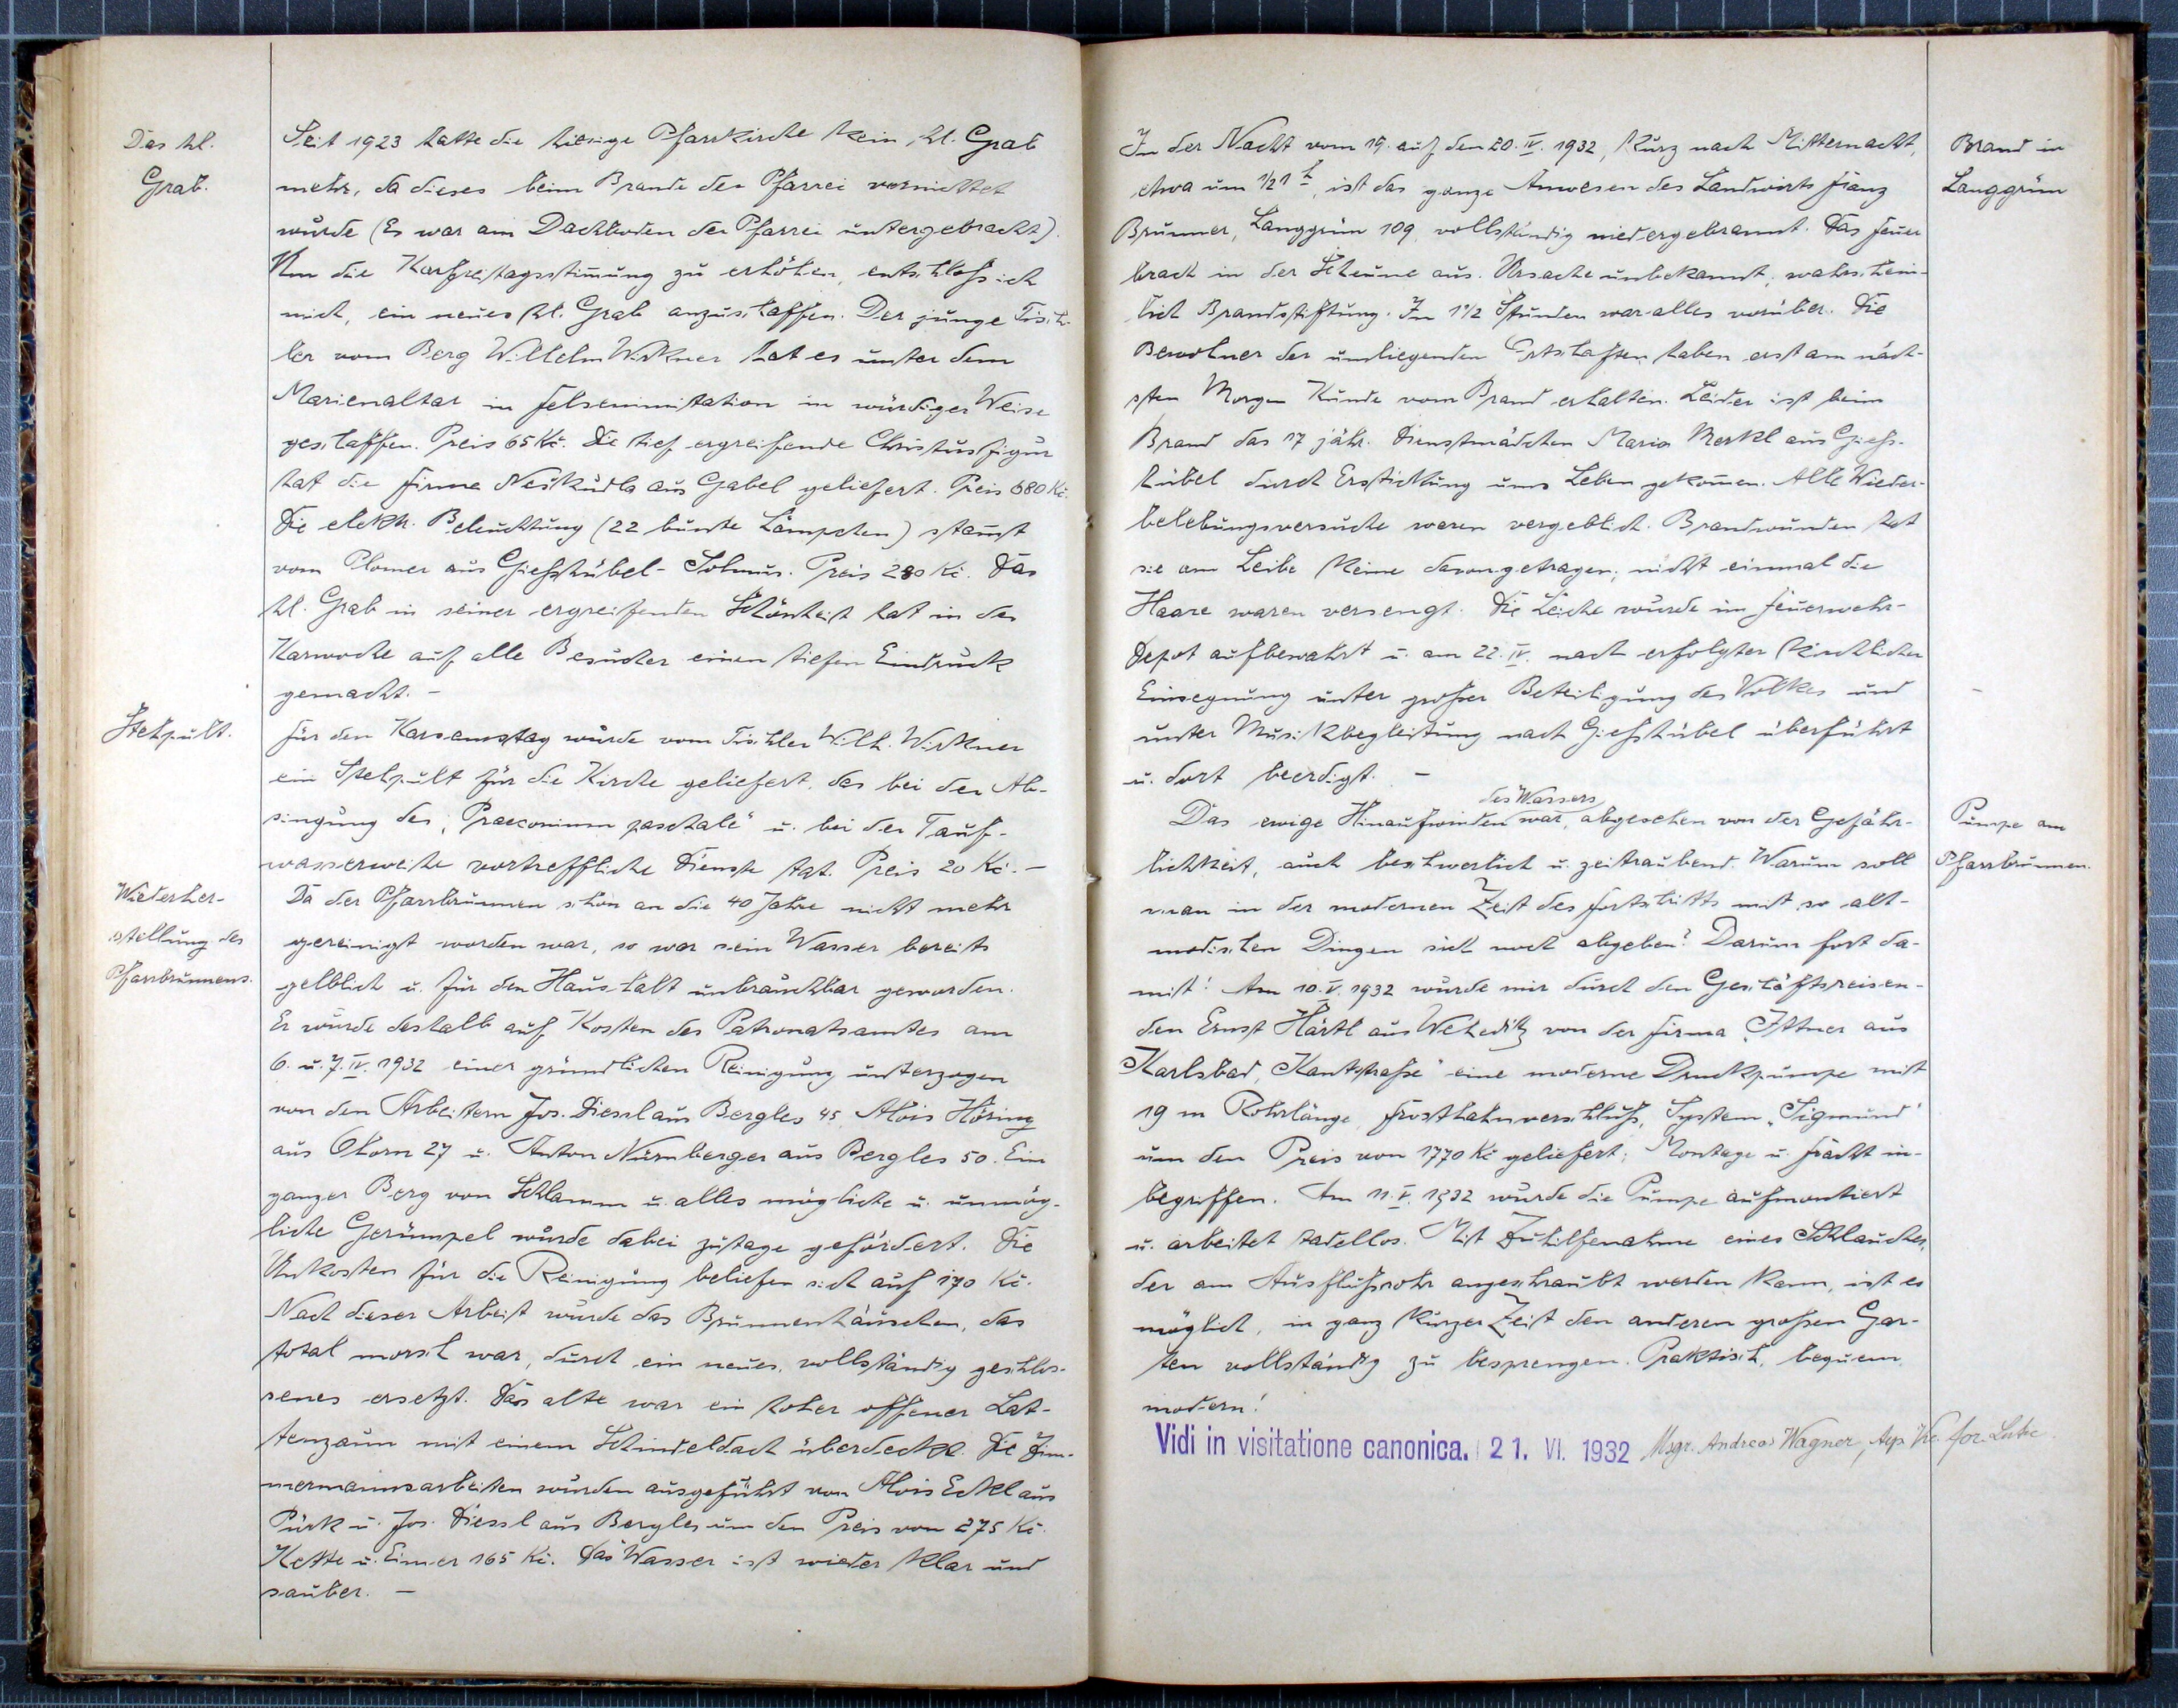 Das hl.
Grab.
Seit 1923 hatte die hiesige Pfarrkirche kein hl. Grab
mehr, da dieses beim Brande der Pfarrei vernichtet
wurde (Es war am Dachboden der Pfarrei untergebracht).
Um die Karfreitagsstimmung zu erhöhen, entschloß ich
mich, ein neues hl. Grab anzuschaffen. Der junge Tisch-
ler vom Berg Wilhelm Wirkner hat es unter dem
Marienaltar in Felsenimitation in würdiger Weise
geschaffen. Preis 65 Kč. Die tief ergreifende Christusfigur
hat die Firma Neškudla aus Gabel geliefert. Preis 680 Kč.
Die elektr. Beleuchtung (22 bunte Lämpchen) stammt
vom Plomer aus Gießhübel-Sohmus. Preis 280 Kč. Das
hl. Grab in seiner ergreifenden Schönheit hat in der
Karwoche auf alle Besucher einen tiefen Eindruck
gemacht. –
Stehpult.
Für den Karsamstag wurde vom Tischler Wilh. Wirkner
ein Stehpult für die Kirche geliefert, das bei der Ab-
singung des „Praeconium paschale" u. bei der Tauf-
wasserweihe vortreffliche Dienste tat. Preis 20 Kč. –
Wiederher-
stellung des
Pfarrbrunnens.
Da der Pfarrbrunnen schon an die 40 Jahre nicht mehr
gereinigt worden war, so war sein Wasser bereits
gelblich u. für den Haushalt unbrauchbar geworden.
Er wurde deshalb auf Kosten des Patronatsamtes am
6. u. 7. IV. 1932 einer gründlichen Reinigung unterzogen
von den Arbeitern Jos. Diessl aus Bergles 45, Alois Höring
aus Ohorn 27 u. Anton Nürnberger aus Bergles 50. Ein
ganzer Berg von Schlamm u. alles mögliche u. unmög-
liche Gerümpel wurde dabei zutage gefördert. Die
Unkosten für die Reinigung beliefen sich auf 170 Kč.
Nach dieser Arbeit wurde das Brunnenhäuschen, das
total morsch war, durch ein neues, vollständig geschlos-
senes ersetzt. Das alte war ein hoher offener Lat-
tenzaun mit einem Schindeldach überdeckt. Die Zim-
mermannsarbeiten wurden ausgeführt von Alois Eckl aus
Pürk u. Jos. Diessl aus Bergles um den Preis von 275 Kč.
Kette u. Eimer 165 Kč. Das Wasser ist wieder klar und
sauber. –
Brand in
Langgrün
In der Nacht vom 19. auf den 20. IV. 1932, kurz nach Mitternacht,
etwa um ½1 h, ist das ganze Anwesen des Landwirts Franz
Brunner, Langgrün 109, vollständig niedergebrannt. Das Feuer
brach in der Scheune aus. Ursache unbekannt, wahrschein-
lich Brandstiftung. In 1½ Stunden war alles vorüber. Die
Bewohner der umliegenden Ortschaften haben erst am näch-
sten Morgen Kunde vom Brand erhalten. Leider ist beim
Brand das 17 jähr. Dienstmädchen Maria Merkl aus Gieß-
hübel durch Erstickung ums Leben gekommen. Alle Wieder-
belebungsversuche waren vergeblich. Brandwunden hat
sie am Leibe keine davongetragen; nicht einmal die
Haare waren versengt. Die Leiche wurde im Feuerwehr-
Depot aufbewahrt u. am 22. IV. nach erfolgter kirchlicher
Einsegnung unter großer Beteiligung des Volkes und
unter Musikbegleitung nach Gießhübel überführt
u. dort beerdigt. –
Pumpe am
Pfarrbrunnen.
des Wassers
Das ewige Hinaufwinden war, abgesehen von der Gefähr-
lichkeit, auch beschwerlich u. zeitraubend. Warum soll
man in der modernen Zeit des Fortschritts mit so alt-
modischen Dingen sich noch abgeben? Darum fort da-
mit! Am 10. V. 1932 wurde mir durch den Geschäftsreisen-
den Ernst Härtl aus Weheditz von der Firma „Ittner aus
Karlsbad, Kantstraße" eine moderne Druckpumpe mit
19 m Rohrlänge, Frosthahnverschluß, System „Sigmund"
um den Preis von 1770 Kč geliefert; Montage u. Fracht in-
begriffen. Am 11. V. 1932 wurde die Pumpe aufmontiert
u. arbeitet tadellos. Mit Zuhilfenahme eines Schlauches,
der am Ausflußrohr angeschraubt werden kann, ist es
möglich, in ganz kurzer Zeit den anderen großen Gar-
ten vollständig zu besprengen. Praktisch, bequem
modern!
Vidi in visitatione canonica. 21. VI. 1932 Msgr. Andreas Wagner, Vic. for.